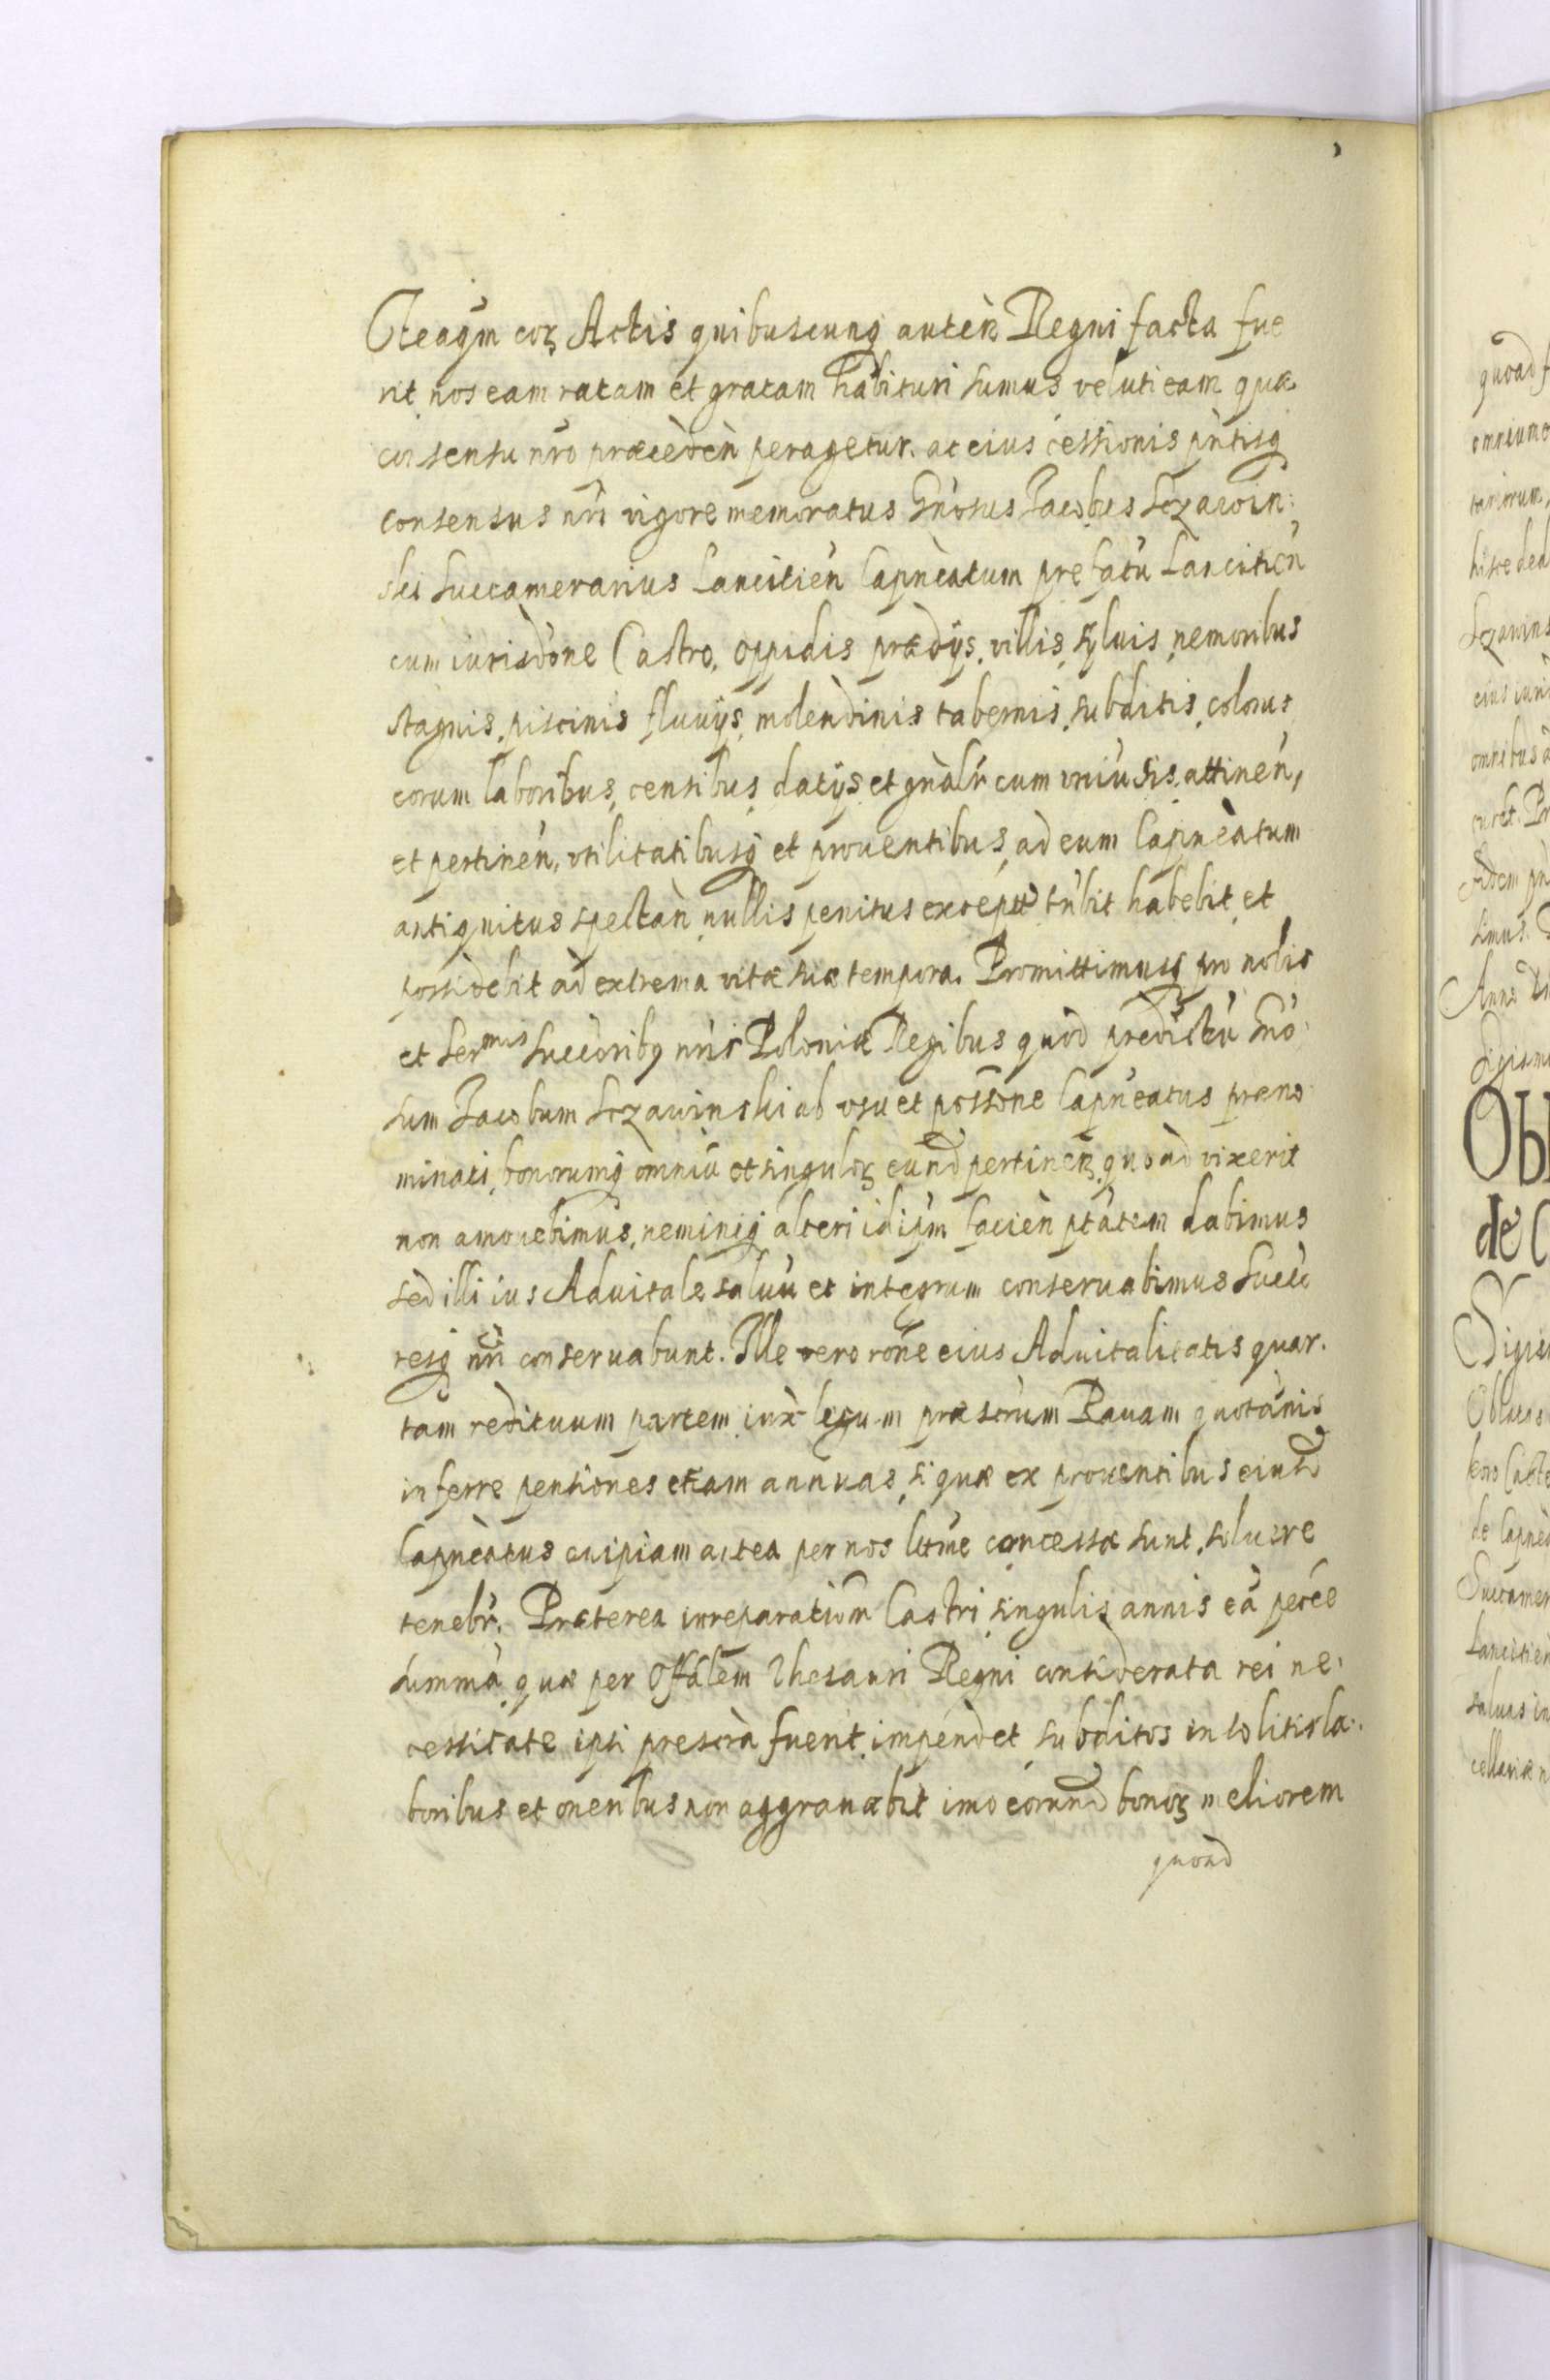 Cteaqm corꝫ Actis quibuscunqꝫ auten Regni facta fue
rit nos eam ratam et gratam habituri sumus veluti eam quæ
consensu nro præceden peragetur. ac eius cessionis pntisqꝫ
consensus nri vigore memoratus Gnosus Jacobus Sczawin:
ski Succamerarius Lancitien Capneatum prefatu Lancitien
cum iurisdone Castro, oppidis prædijs, villis, syluis, nemoribus
stagnis, piscinis fluuijs, molendinis tabernis, subditis, colonis
eorum laboribus, censibus, datijs et gnalr cum vniusis attinen,
et pertinen, vtilitatibusqꝫ et prouentibus, ad eum Capneatum
antiquitus spectan nullis penitus except tnbit habebit, et
possidebit ad extrema vitæ suæ tempora. Promittimusqꝫ pro nobis
et Sermis Succoribꝰ nris Poloniæ Regibus quod predictu Gno
sum Jacobum Sczawinski ab vsu et possone Capneatus præno
minati, bonorumqꝫ omniu et singulorꝫ eund pertinen, quoad vixerit
non amouebimus, neminiqꝫ alteri id ipm facien ptatem dabimus
sed illi ius Aduitale saluu et integrum conseruabimus Succ
resqꝫ nri conseruabunt. Ille vero rone eius Aduitalitatis quar.
tam redituum partem iuxˉ legum præscrum Rauam quotanis
inferre pensiones etiam annuas, si quæ ex prouentibus eiusd
Capneatus cuipiam antea per nos ltme concessæ sunt, soluere
tenebr. Præterea in reparatiom Castri singulis annis ea pecce
summa, quæ per Offalem Thesauri Regni considerata rei ne.
cessitate ipsi prescra fuerit impendet, subditos insolitis la:
boribus et oneribus non aggrauabit imo eorund bonorꝫ meliorem
quoad